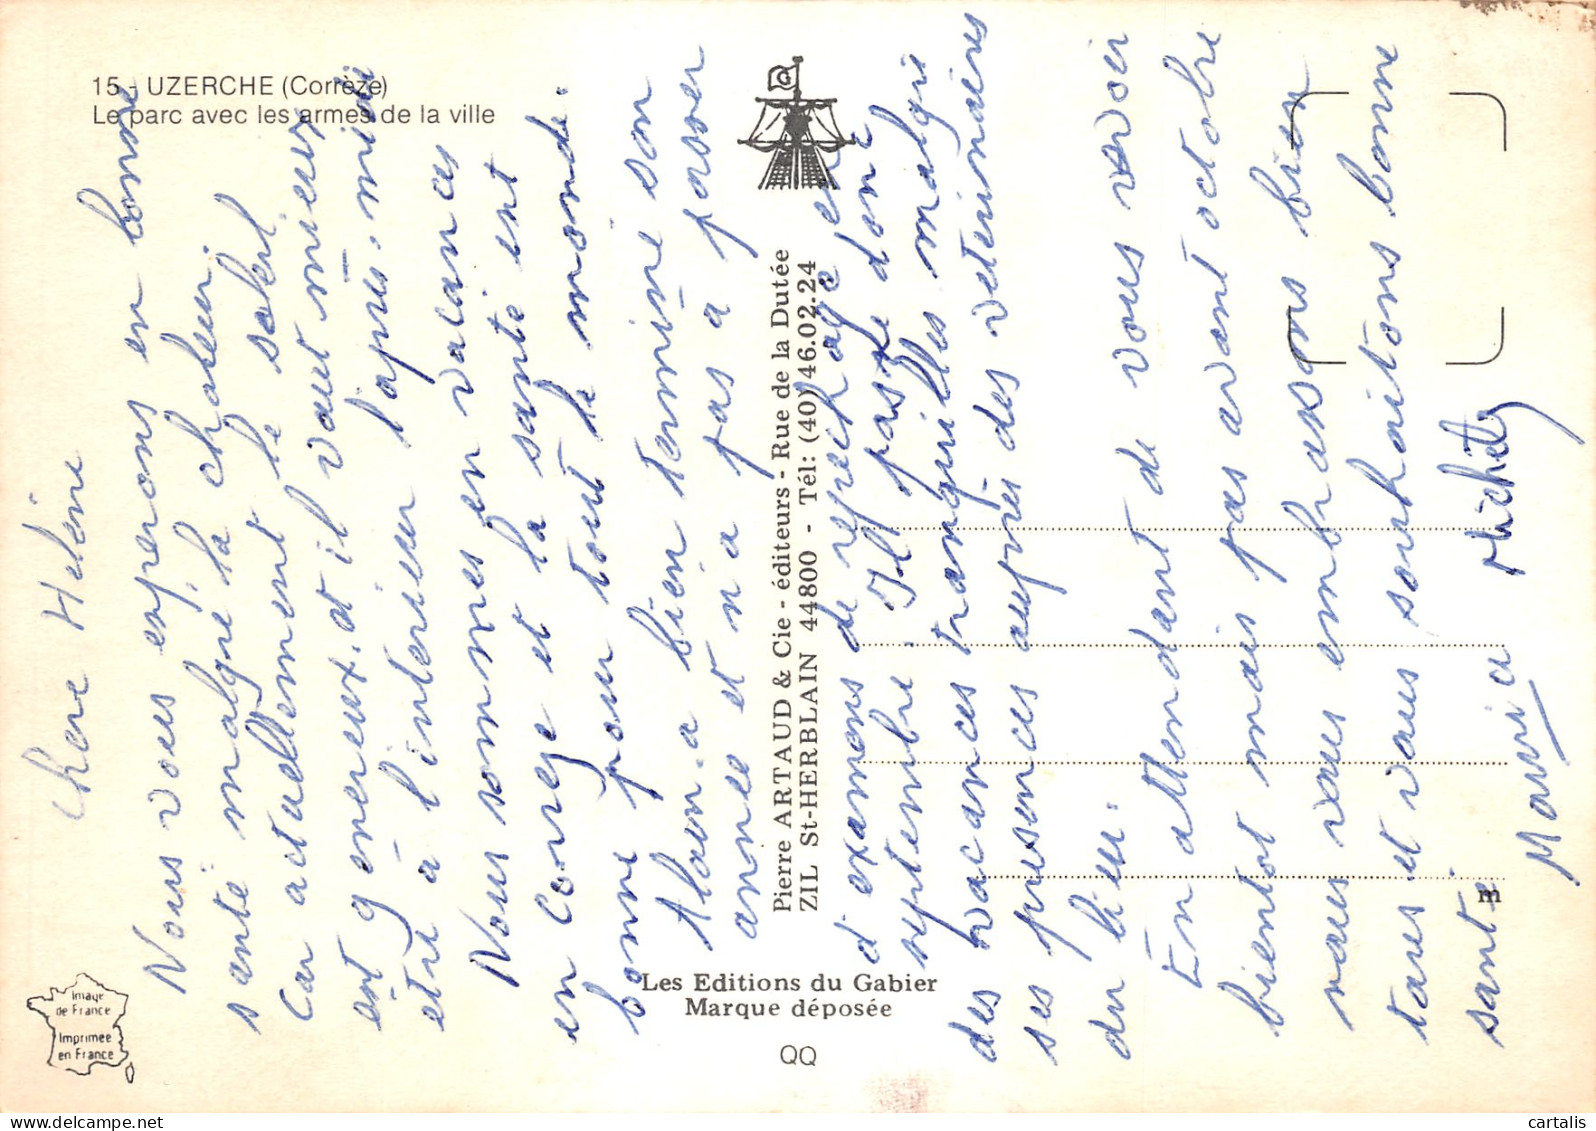 15 - UZERCHE (Corrèze)
Le parc avec les armes de la ville
Chere Helène
Nous vous esperons en bonne
santé malgré la chaleur.
Car actuellement le soleil
est genereux. et il vaut mieux
etre à l'interieur l'après-midi
Nous sommes en vacances
en Correze et la santé est
bonne pour tout le monde.
Alain a bien terminé son
année et n'a pas à passer
d'examens de repechage en
septembre. Il passe donc
des vacances tranquilles malgré
ses presences auprès des veterinaires
du lieu.
En attendant de vous revoir
bientot mais pas avant octobre
nous vous embrassons bien
tous et vous souhaitons bonne
santé.
Maurice Michely
Pierre ARTAUD & Cie - éditeurs - Rue de la Dutée
ZIL St-HERBLAIN 44800 - Tél: (40) 46.02.24
Les Editions du Gabier
Marque déposée
QQ
m
Image
de France
Imprimée
en France
delcampe.net
cartalis